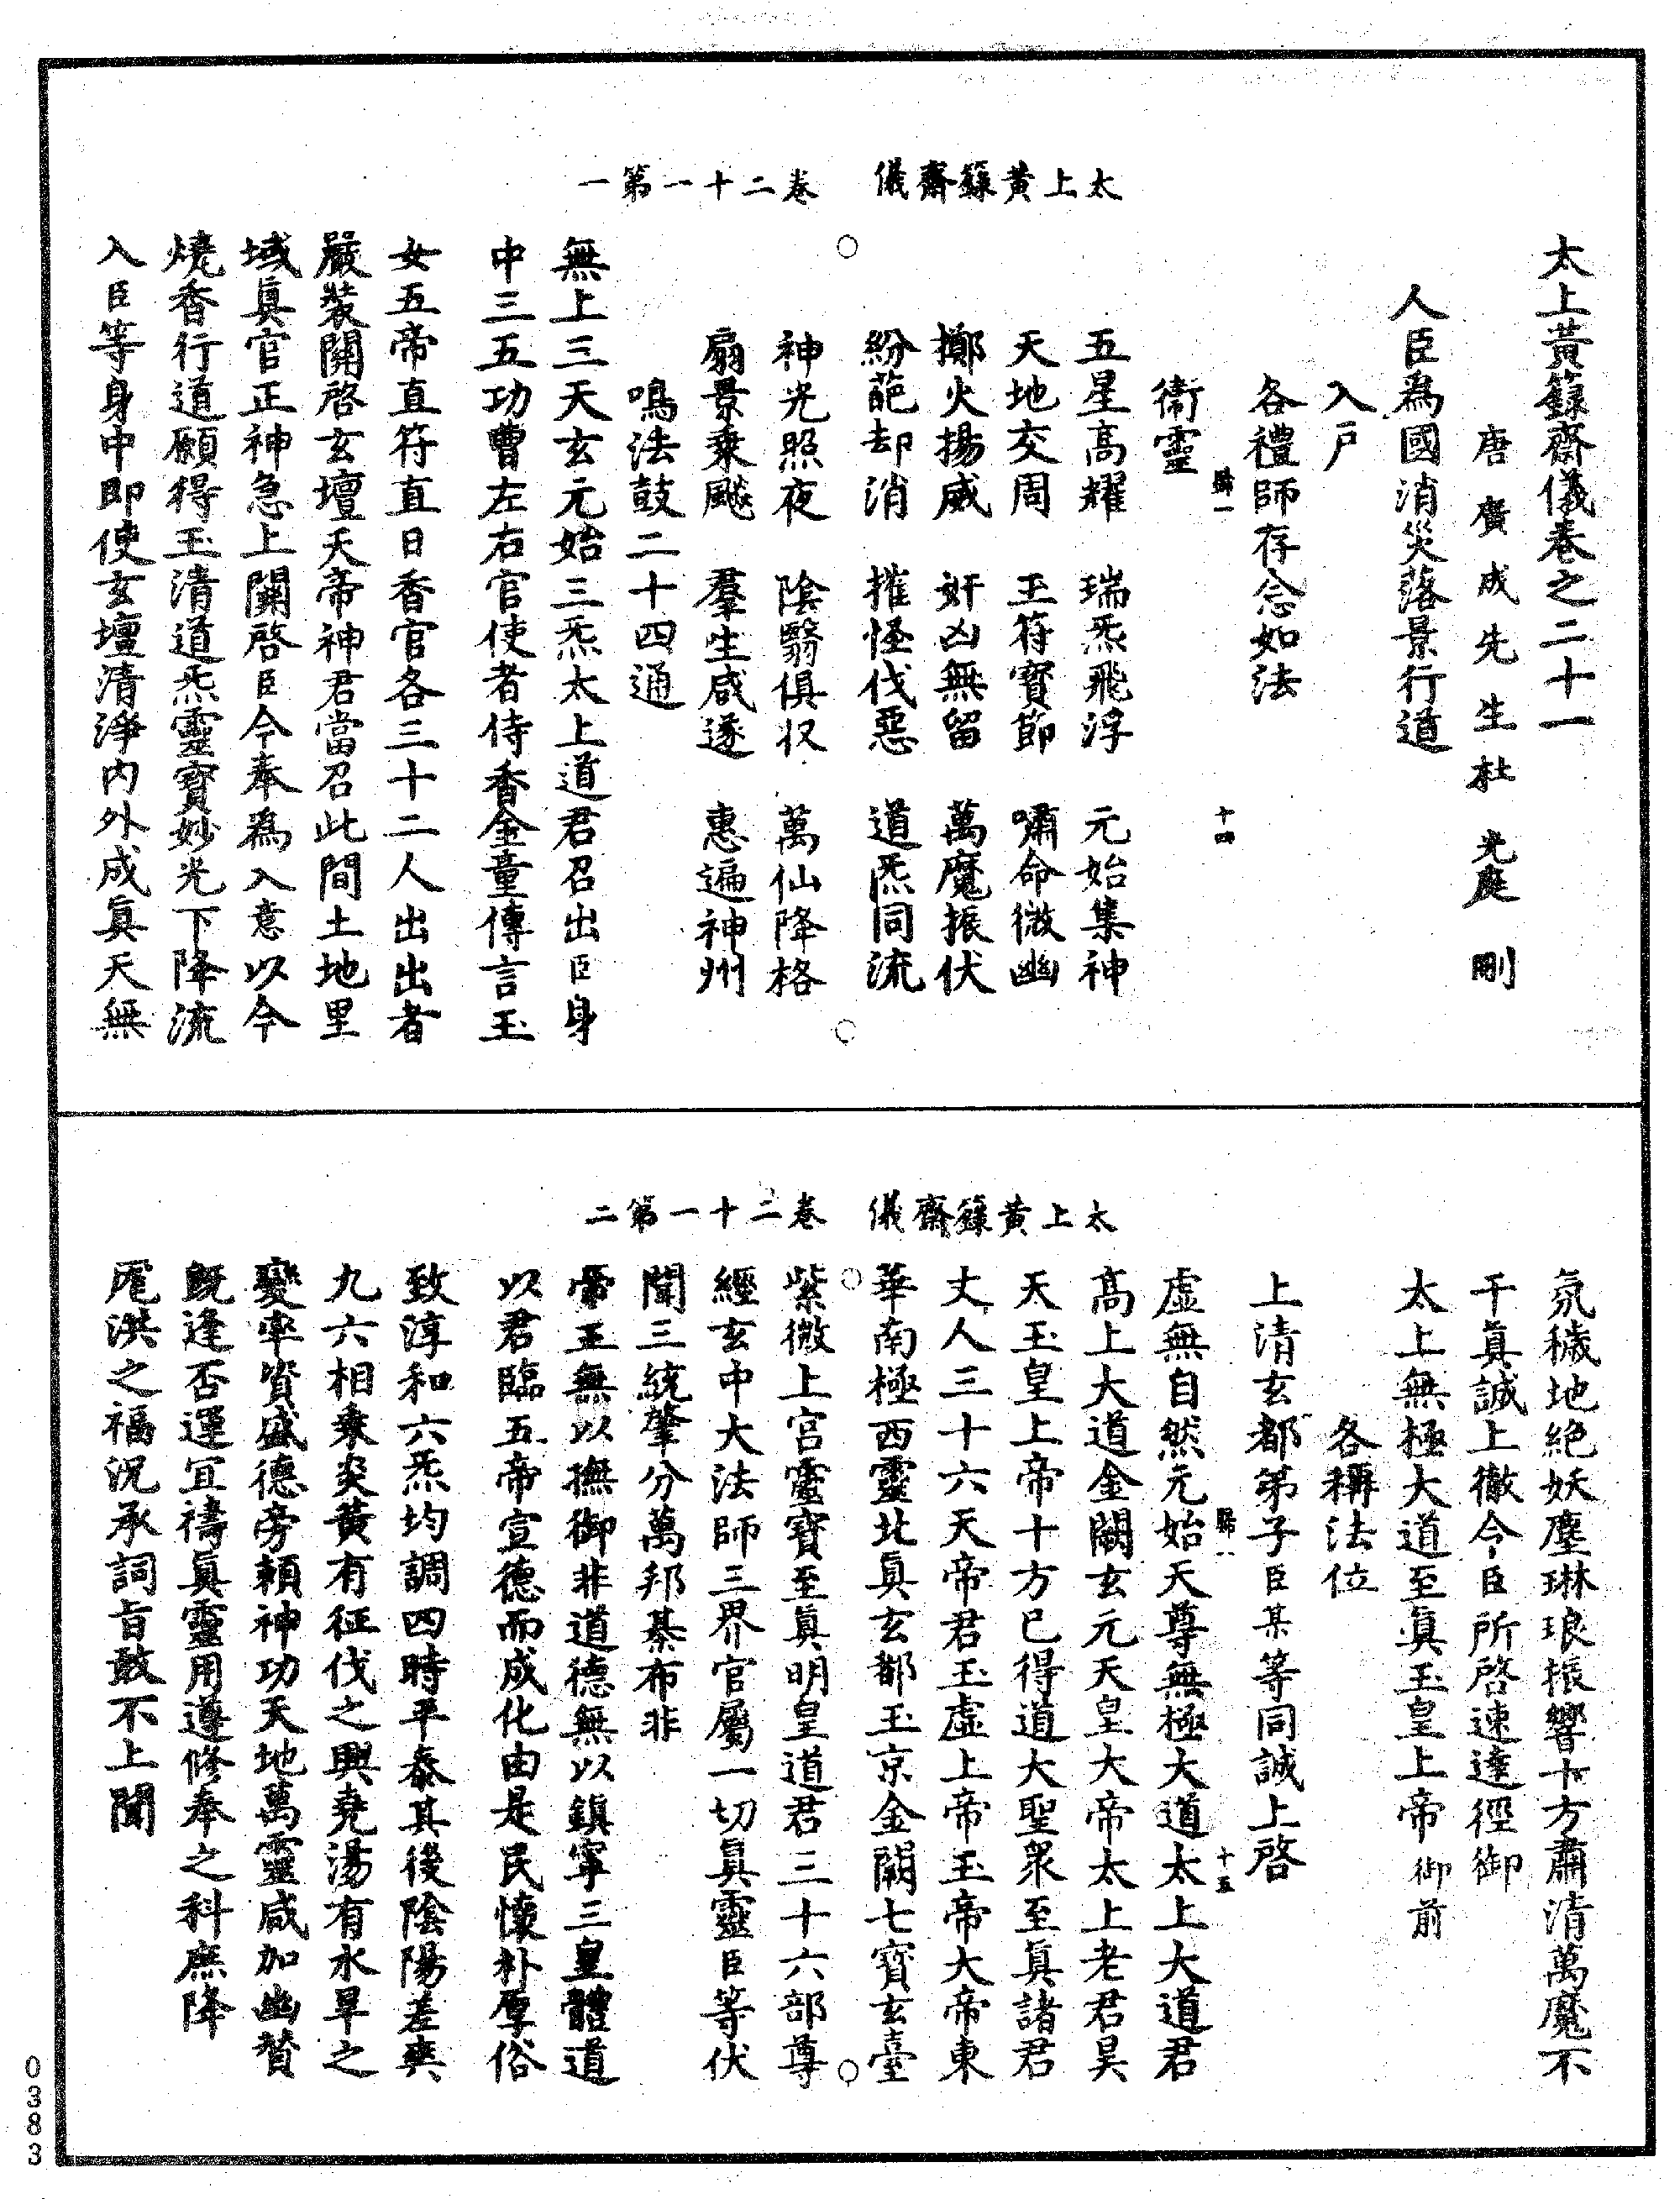 太上黃籙齋儀　卷二十一第一
太上黃籙齋儀卷之二十一
唐廣成先生杜　光庭　刪
人臣為國消災落景行道
入戶
各禮師存念如法
歸一　十四
衛靈
五星高耀　瑞炁飛浮　元始集神
天地交周　玉符寶節　嘯命微幽
擲火揚威　奸凶無留　萬魔振伏
紛葩却消　摧怪伐惡　道炁同流
神光照夜　陰翳俱收　萬仙降格
扇景乘飈　羣生咸遂　惠遍神州
鳴法鼓二十四通
無上三天玄元始三炁太上道君召出臣身
中三五功曹左右官使者侍香金童傳言玉
女五帝直符直日香官各三十二人出出者
嚴裝關啓玄壇天帝神君當召此間土地里
域真官正神急上關啓臣今奉為入意以今
燒香行道願得玉清道炁靈寶妙光下降流
入臣等身中即使玄壇清淨內外成真天無
太上黃籙齋儀　卷二十一第二
氛穢地絕妖塵琳琅振響十方肅清萬魔不
干真誠上徹今臣所啓速達徑御
太上無極大道至真玉皇上帝御前
各稱法位
上清玄都弟子臣某等同誠上啓
歸一　十五
虛無自然元始天尊無極大道太上大道君
高上大道金闕玄元天皇大帝太上老君昊
天玉皇上帝十方已得道大聖眾至真諸君
丈人三十六天帝君玉虛上帝玉帝大帝東
華南極西靈北真玄都玉京金闕七寶玄臺
紫微上宮靈寶至真明皇道君三十六部尊
經玄中大法師三界官屬一切真靈臣等伏
聞三統肇分萬邦棊布非
帝王無以撫御非道德無以鎮寧三皇體道
以君臨五帝宣德而成化由是民懷朴厚俗
致淳和六炁均調四時平泰其後陰陽差爽
九六相乘炎黃有征伐之興堯湯有水旱之
變率資盛德旁賴神功天地萬靈咸加幽贊
既逢否運宜禱真靈用遵修奉之科庶降
厖洪之福況承詞旨敢不上聞
0383